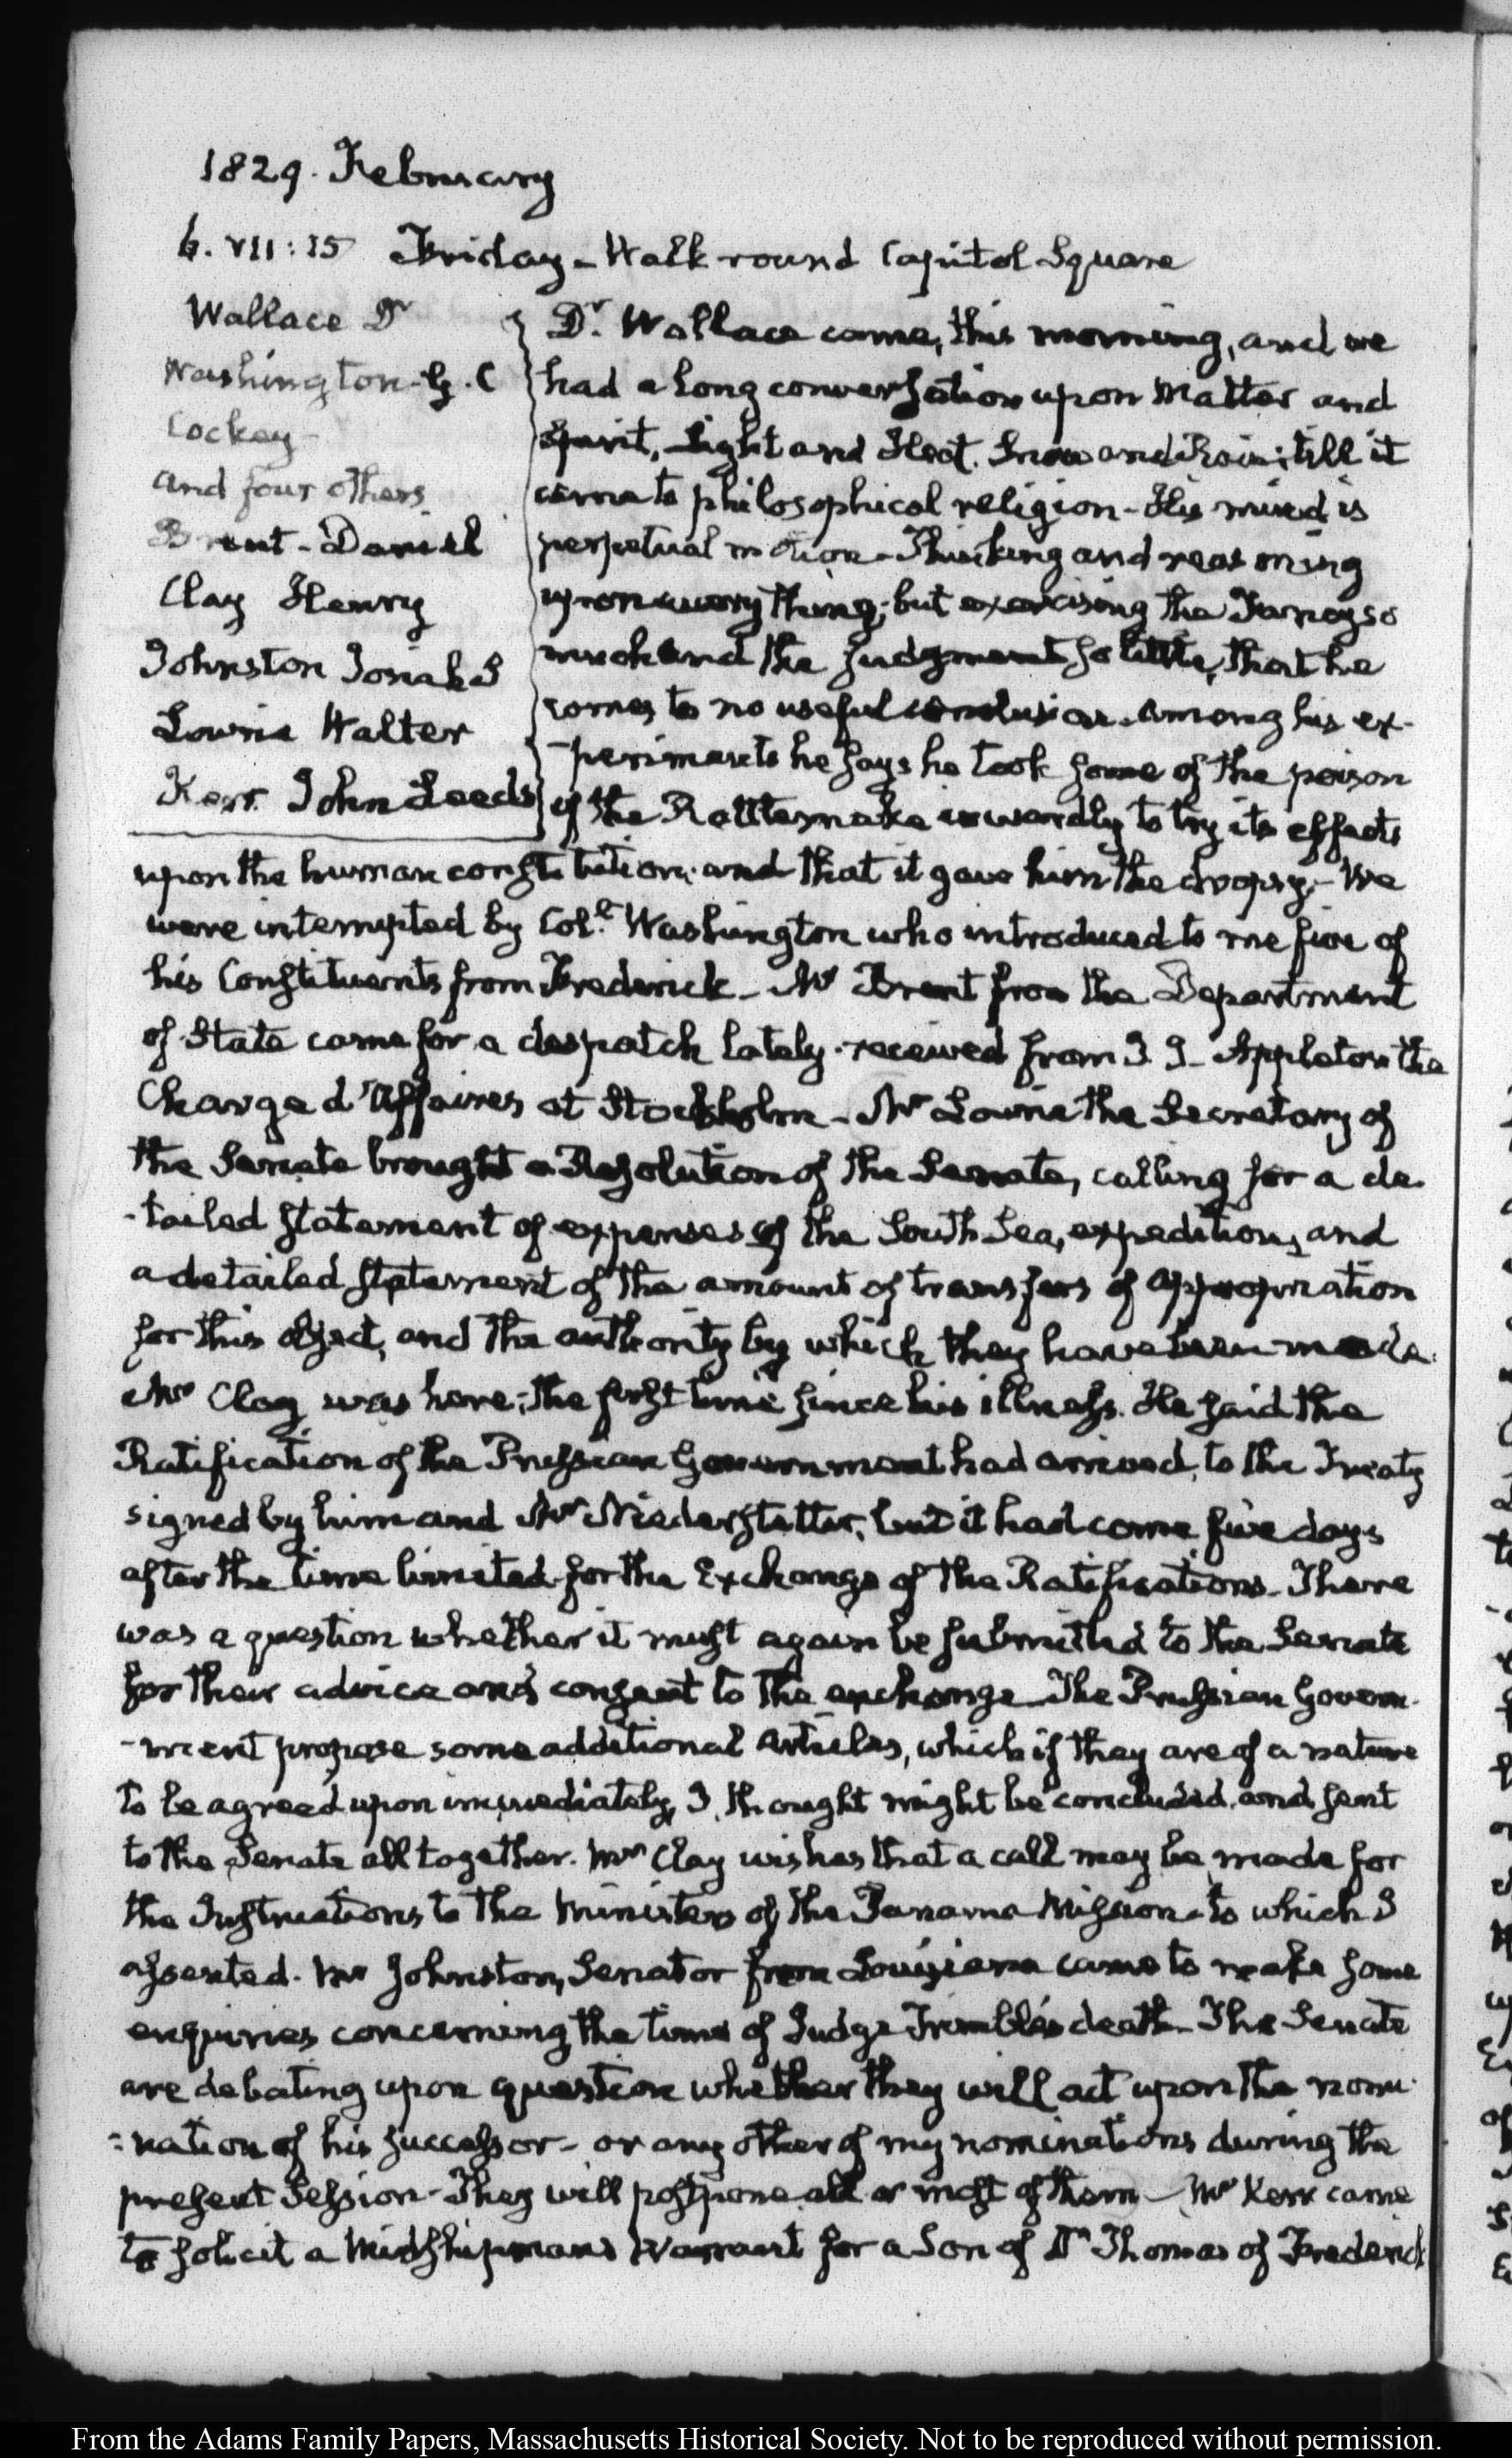 1829. February
6. VII:15 Friday - Walk round Capitol Square
Wallace Dr
Washington. G. C
Cockey
and four others
Brent - Daniel
Clay Henry
Johnston Josiah S
Lowrie Walter
Kerr. John Leeds
Dr. Wallace came, this morning, and we
had a long conversation upon Matter and
Spirit, Light and Heat. Snow and Rain; till it
came to philosophical religion - His mind is
perpetual motion - Thinking and reasoning
upon every thing; but exercising the Fancy so
much and the judgment so little, that he
comes to no useful conclusion. Among his ex-
-periments he says he took some of the poison
of the Rattlesnake inwardly to try its effects
upon the human constitution; and that it gave him the dropsy - We
were interrupted by Coll. Washington who introduced to me five of
his Constituents from Frederick - Mr Brent from the Department
of State came for a despatch lately received from J J - Appleton the
Chargé d'Affaires at Stockholm - Mr Lowrie the Secretary of
the Senate brought a Resolution of the Senate, calling for a de-
-tailed statement of expenses of the South Sea, expedition, and
a detailed statement of the amount of transfers of appropriation
for this object, and the authority by which they have been made.
Mr Clay was here; the first time since his illness. He said the
Ratification of the Prussian Government had arrived, to the Treaty
signed by him and Mr Niederstetter, but it had come five days
after the time limited for the Exchange of the Ratifications - There
was a question whether it must again be submitted to the Senate
for their advice and consent to the exchange - The Prussian Govern-
-ment propose some additional Articles, which if they are of a nature
to be agreed upon immediately, I thought might be concluded, and sent
to the Senate all together. Mr Clay wishes that a call may be made for
the Instructions to the Ministers of the Panama Mission - to which I
assented. Mr Johnston, Senator from Louisiana came to make some
enquiries concerning the time of Judge Trimble's death - The Senate
are debating upon question whether they will act upon the nomi-
-nation of his successor - or any other of my nominations during the
present Session - They will postpone all or most of them - Mr Kerr came
to solicit a Midshipman's Warrant for a Son of Dr Thomas of Frederick
From the Adams Family Papers, Massachusetts Historical Society. Not to be reproduced without permission.